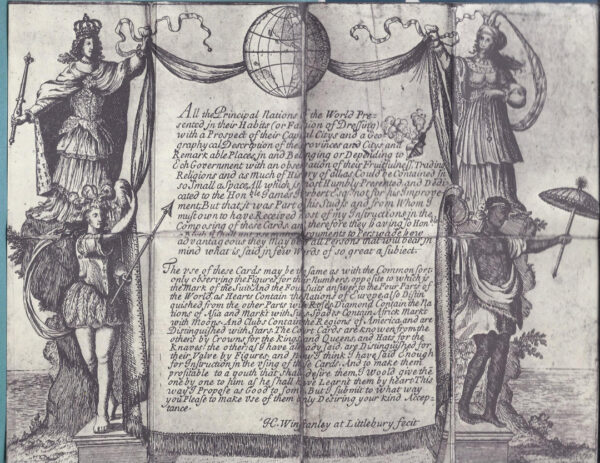 All the Principal Nations of the World Pre=
sented in their Habits (or Fashion of Dressing)
with a Prospect of their Capital Citys and a Geo=
graphycal Description of the Provinces and Citys and
Remarkable Places in and Belonging or Depending to
Ech Government with an observation of their Fruitfullness Trading
Religions and as much of History of all as Could be Contained In
so Small a Space, All which is most Humbly Presented and Dedi=
cated to the Honble James Herbert Esq not for his Improve
ment. But that it was Part of his Study and from Whom I
must own to have Received most of my Instructions in the
Composing of these Cards and therefore they having so Honble
a to Persuade how
advantageous they may be to all Persons that will bear in
mind what is said in few Words of so great a subiect.
The vse of these Cards may be the same as with the Common sort
only observing the Figures for their Numbers, opposite to which is
the Mark of the Suit. And the Four Suits answer to the Four Parts of
the World, as Hearts Contain the Nations of Europe also Distin
guished from the other Parts with Roses. Diamond Contain the Na
tions of Asia and Markt with Suns. Spades Contain Africk Markt
with Moons. And Clubs Contain the Regions of America, and are
Distinguished with Stars. The Court Cards are known from the
others by Crowns for the Kings and Queens, and Hats for the
Knaves: the others, as I have already said, ary Distinguished for
their Valve by Figures and now I think I have said Enough
for Instruction in the vsing of these Cards. And to make them
profitable to a youth that shall desire them, I would give the
one by one to him as he shall have Learnt them by heart. This
way I Propose as Good to some. But I submit to what way
you Please to make vse of them only Desiring your kind Accep=
tance.
H: Winstanley at Littlebury fecit